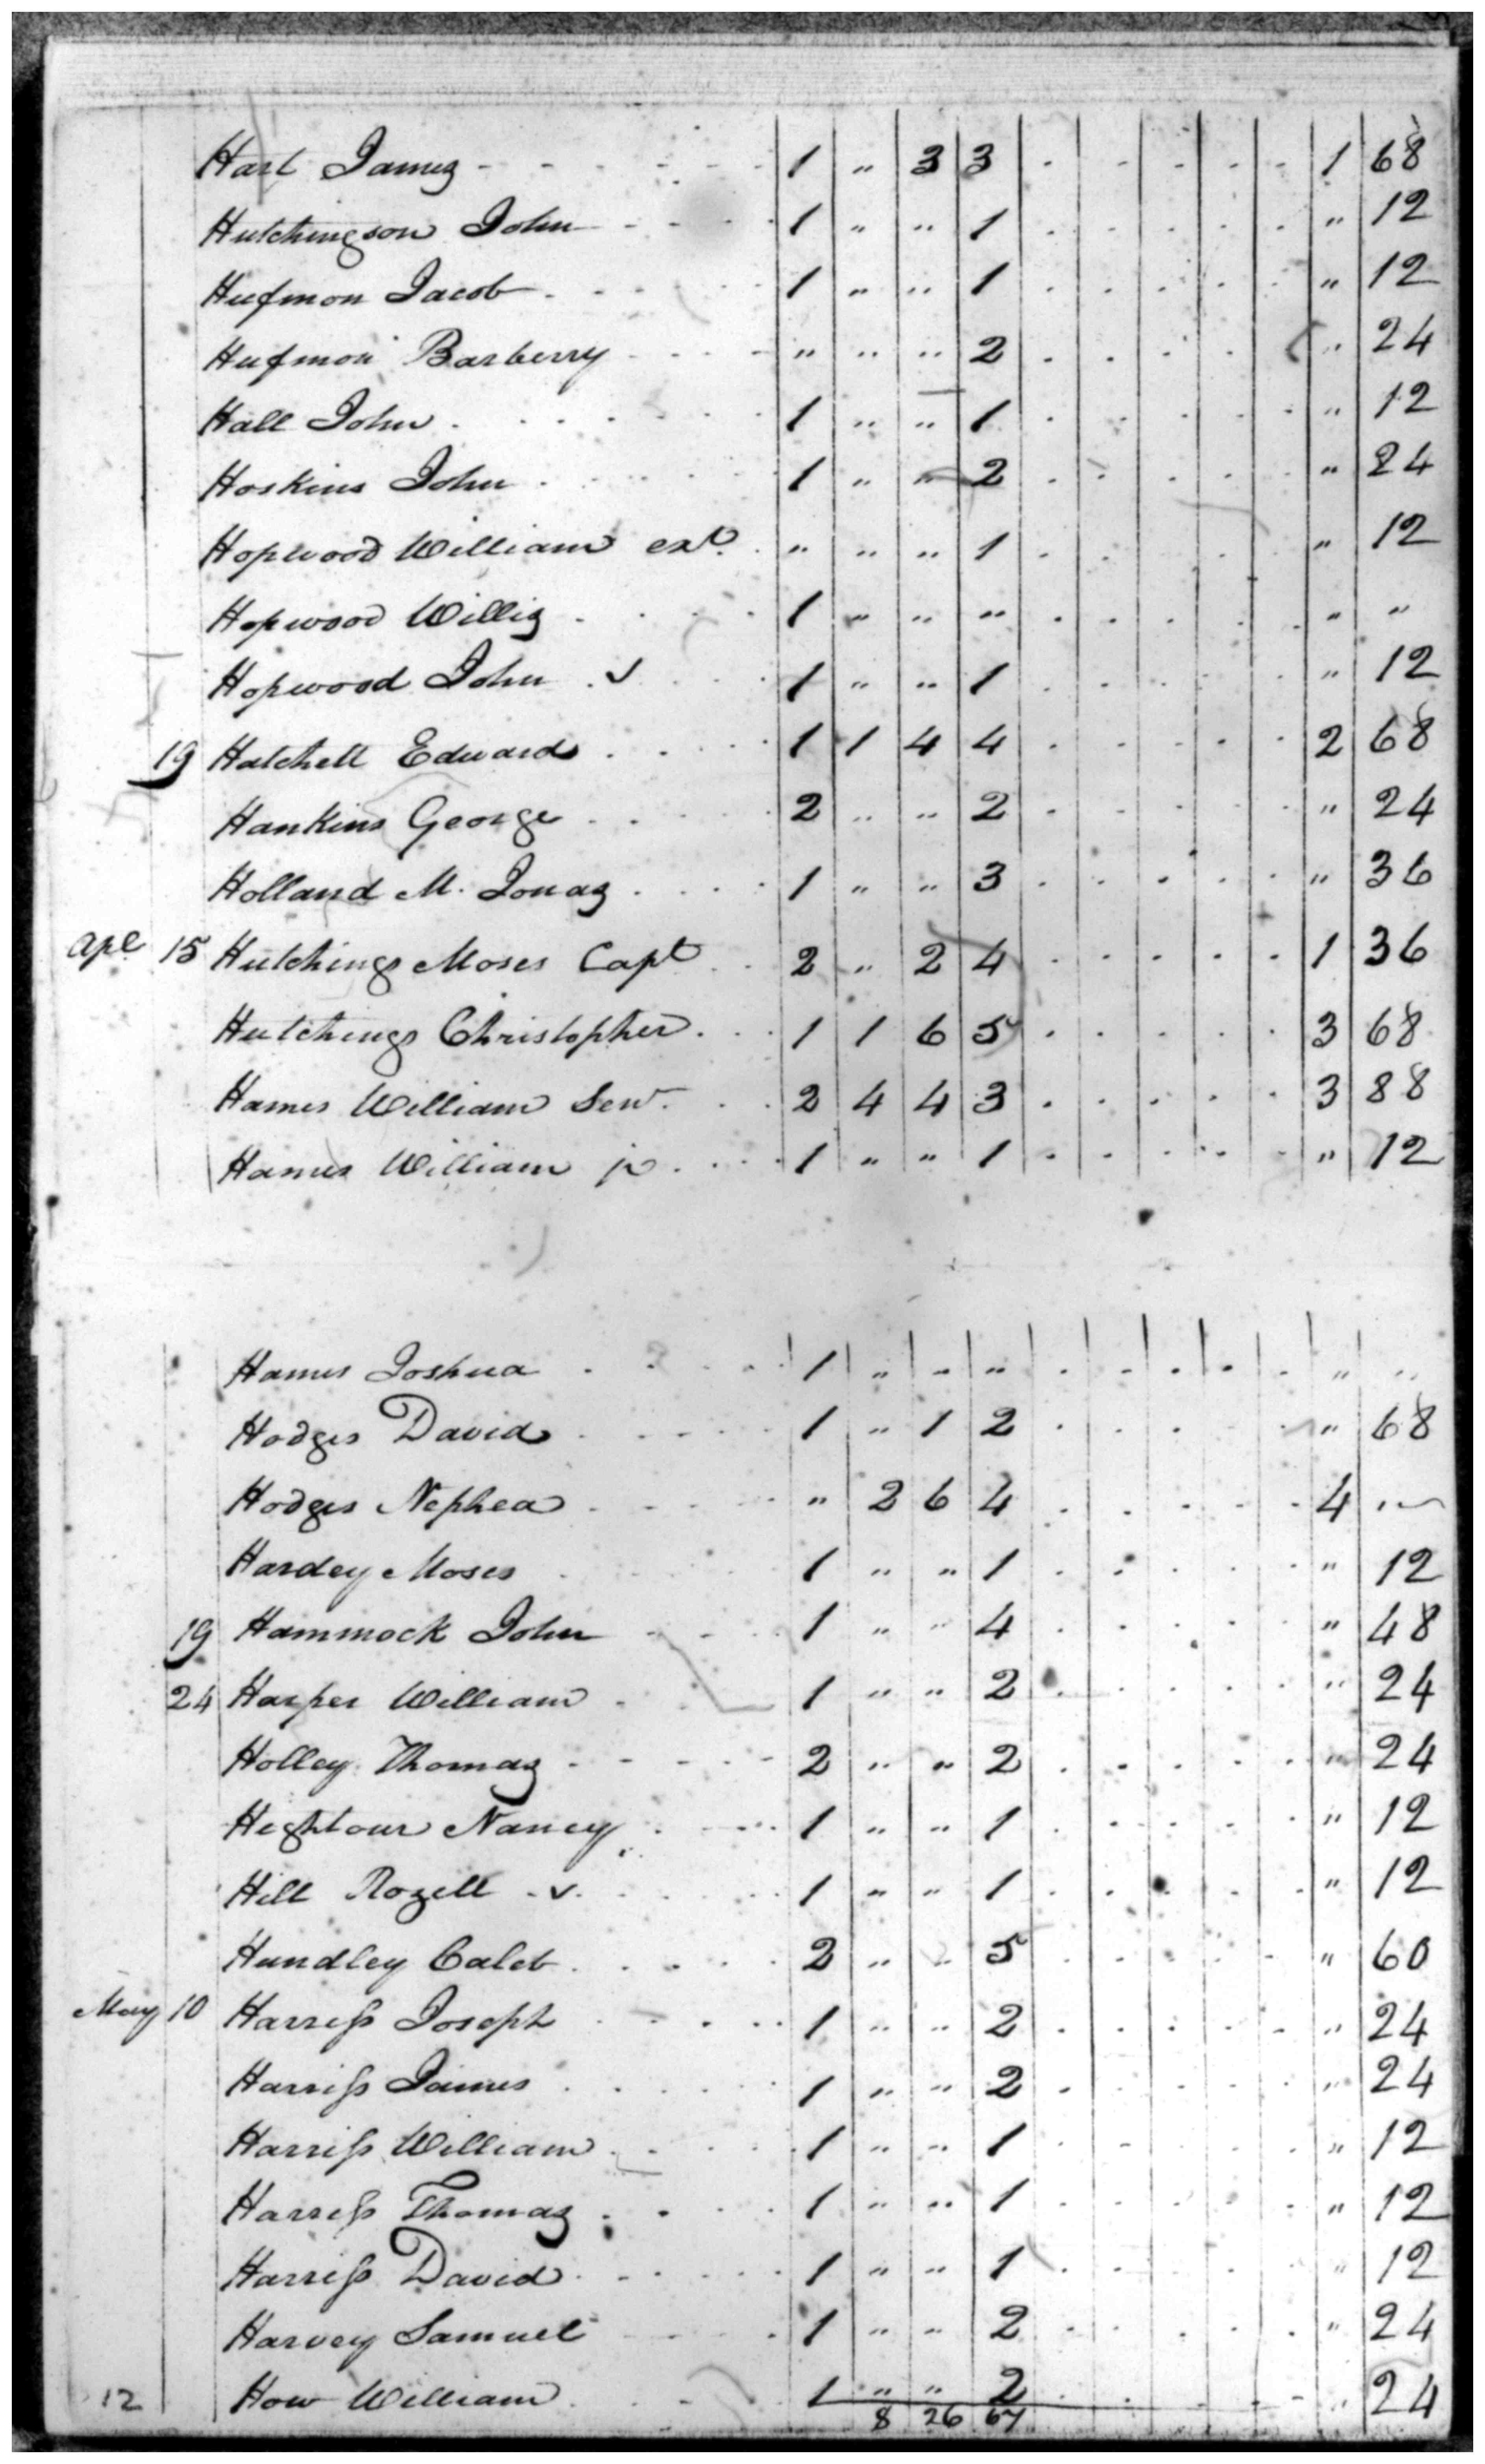 Hart James - - - - - 1 " 3 3 . . . . . 1 68
Hutchingson John - - - 1 " " 1 . . . . . " 12
Hufmon Jacob . . . . . 1 " " 1 . . . . . " 12
Hufmon Barberry - - - " " " 2 . . . . . " 24
Hall John . . . . . 1 " " 1 . . . . . " 12
Hoskins John . . . . . 1 " " 2 . . . . . " 24
Hopwood William ext. . " " " 1 . . . . . " 12
Hopwood Willis . . . . 1 " " " . . . . . " "
Hopwood John . v . . . 1 " " 1 . . . . . " 12
19 Hatchell Edward . . . . 1 1 4 4 . . . . . 2 68
Hankins George . . . . . 2 " " 2 . . . . . " 24
Holland M. Jonas . . . . 1 " " 3 . . . . . " 36
Apl 15 Hutchings Moses Capt . . 2 " 2 4 . . . . . 1 36
Hutchings Christopher . . . 1 1 6 5 . . . . . 3 68
Hames William Senr. . . 2 4 4 3 . . . . . 3 88
Hames William jr . . . . 1 " " 1 . . . . . " 12
Hames Joshua . . . . 1 " " " . . . . . " "
Hodges David . . . . . 1 " 1 2 . . . . . " 68
Hodges Nephea . . . . . " 2 6 4 . . . . . 4 "
Hardey Moses . . . . 1 " " 1 . . . . . " 12
19 Hammock John - - - - 1 " " 4 . . . . . " 48
24 Harper William . 1 " " 2 . . . . . " 24
Holley Thomas - - - - 2 " " 2 . . . . . " 24
Hightour Nancy . . . . 1 " " 1 . . . . . " 12
Hill Rozell . v . . . . 1 " " 1 . . . . . " 12
Hundley Caleb . . . . . 2 " " 5 . . . . . " 60
May 10 Harriss Joseph . . . . . 1 " " 2 . . . . . " 24
Harriss James . . . . . 1 " " 2 . . . . . " 24
Harriss William . . . . 1 " " 1 . . . . . " 12
Harriss Thomas . . . . 1 " " 1 . . . . . " 12
Harriss David . . . . . 1 " " 1 . . . . . " 12
Harvey Samuel - - - . 1 " " 2 . . . . . " 24
12 How William . . . . 1 " " 2 . . . . . " 24
8 26 67